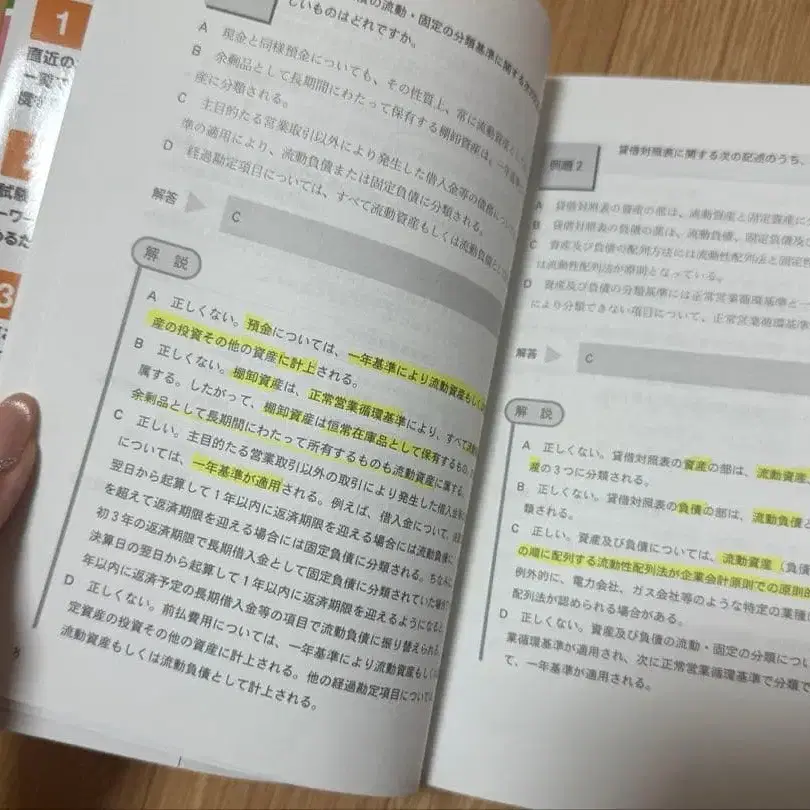 1
直近の
試験
3
の流動・固定の分類基準に関する
しいものはどれですか。
A 現金と同様預金についても、その性質上、常に流動資産とし
B 余剰品として長期間にわたって保有する棚卸資産は、一年基準
産に分類される。
C 主目的たる営業取引以外により発生した借入金等の債務につい
準の適用により、流動負債または固定負債に分類される。
D 経過勘定項目については、すべて流動資産もしくは流動負債とし
解答
C
解 説
A 正しくない。預金については、一年基準により流動資産もしく
産の投資その他の資産に計上される。
B 正しくない。棚卸資産は、正常営業循環基準により、すべて流動
属する。したがって、棚卸資産は恒常在庫品として保有するもの、
余剰品として長期間にわたって所有するものも流動資産に属する。
C 正しい。主目的たる営業取引以外の取引により発生した借入金等
については、一年基準が適用される。例えば、借入金について、
翌日から起算して1年以内に返済期限を迎える場合には流動負債に
を超えて返済期限を迎える場合には固定負債に分類される。ちなみに
初3年の返済期限で長期借入金として固定負債に分類されていた場合で
決算日の翌日から起算して1年以内に返済期限を迎えるようになると
年以内に返済予定の長期借入金等の項目で流動負債に振り替えられる。
D 正しくない。前払費用については、一年基準により流動資産もしくは
定資産の投資その他の資産に計上される。他の経過勘定項目については
流動資産もしくは流動負債として計上される。
例題2
貸借対照表に関する次の記述のうち、
A 貸借対照表の資産の部は、流動資産と固定資産に
B 貸借対照表の負債の部は、流動負債、固定負債及び
C 資産及び負債の配列方法には流動性配列法と固定性
は流動性配列法が原則となっている。
D 資産及び負債の分類基準には正常営業循環基準と一
により分類できない項目について、正常営業循環基準
解答
C
解 説
A 正しくない。貸借対照表の資産の部は、流動資産、
産の3つに分類される。
B 正しくない。貸借対照表の負債の部は、流動負債と
類される。
C 正しい。資産及び負債については、流動資産（負債
の順に配列する流動性配列法が企業会計原則での原則的
例外的に、電力会社、ガス会社等のような特定の業種に
配列法が認められる場合がある。
D 正しくない。資産及び負債の流動・固定の分類につい
業循環基準が適用され、次に正常営業循環基準で分類で
て、一年基準が適用される。